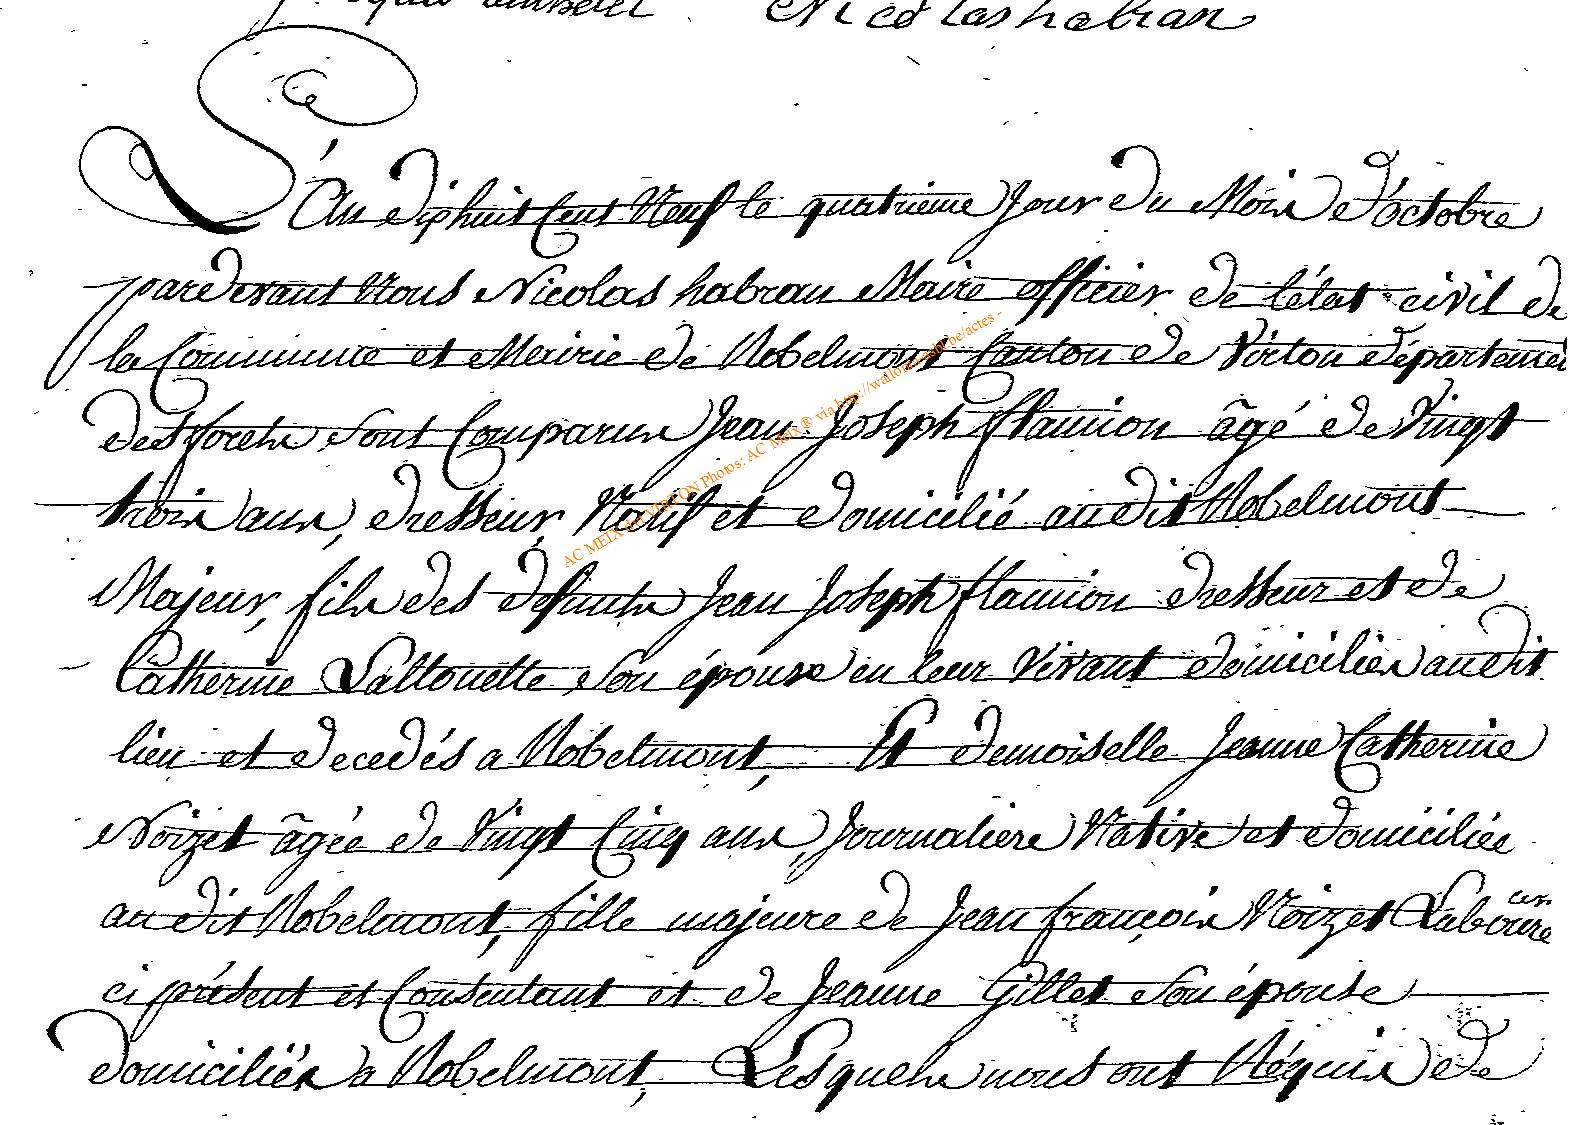 Nicolas habran
L'An dixhuit Cent Neuf le quatrieme Jour du Mois d'octobre
pardevant Nous Nicolas habran Maire officier de l'état civil de
la Commune et Mairie de Robelmont Canton de Virton départemen
des forets sont Comparus Jean Joseph flamion âgé de Vingt
trois ans, dresseur, Natif et domicilié audit Robelmont
Majeur, fils des defunts Jean Joseph flamion dresseur et de
Catherine Laltouette son épouse en leur vivant domiciliés audit
lieu et decedés a Robelmont, Et demoiselle Jeanne Catherine
Noizet âgée de Vingt Cinq ans, Journaliere Native et domiciliée
au dit Robelmont, fille majeure de Jean françois Noizet Laboure
ci présent et Consentant et de Jeanne Gillet son épouse
domiciliés a Robelmont, Lesquels nous ont Réquis de
AC MEIX-DT-VIRTON Photos: AC Meix® via http://wallonica.be/actes -